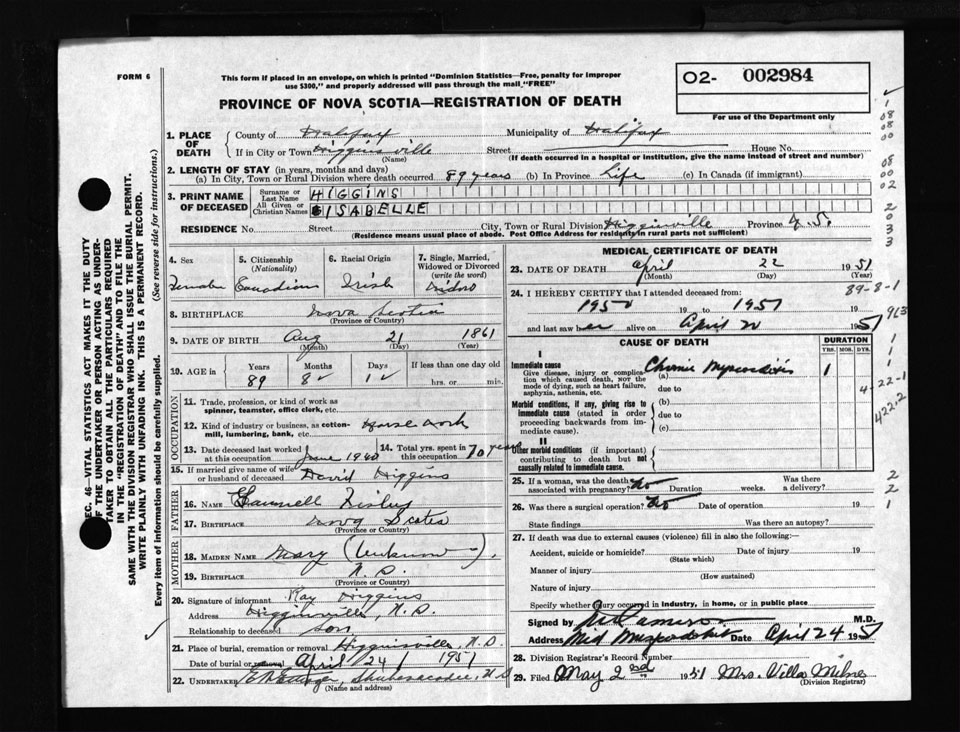 FORM 6
This form if placed in an envelope, on which is printed "Dominion Statistics—Free, penalty for improper
use $300," and properly addressed will pass through the mail "FREE"
PROVINCE OF NOVA SCOTIA—REGISTRATION OF DEATH
02- 002984
For use of the Department only
1. PLACE OF DEATH
County of Halifax Municipality of Halifax
If in City or Town Higginsville Street House No.
(Name) (If death occurred in a hospital or institution, give the name instead of street and number)
2. LENGTH OF STAY (in years, months and days)
(a) In City, Town or Rural Division where death occurred 89 years (b) In Province Life (c) In Canada (if immigrant)
3. PRINT NAME OF DECEASED
Surname or Last Name HIGGINS
All Given or Christian Names ISABELLE
RESIDENCE No. Street City, Town or Rural Division Higginsville Province N.S.
(Residence means usual place of abode. Post Office Address for residents in rural parts not sufficient)
4. Sex 5. Citizenship (Nationality) 6. Racial Origin 7. Single, Married, Widowed or Divorced (write the word)
Female Canadian Irish
8. BIRTHPLACE Nova Scotia
(Province or Country)
9. DATE OF BIRTH Aug 21 1861
(Month) (Day) (Year)
10. AGE in Years Months Days If less than one day old
89 8 1 hrs. or min.
OCCUPATION
11. Trade, profession, or kind of work as spinner, teamster, office clerk, etc.
12. Kind of industry or business, as cotton-mill, lumbering, bank, etc. House Work
13. Date deceased last worked at this occupation June 1940 14. Total yrs. spent in this occupation 70 years
15. If married give name of wife or husband of deceased David Higgins
FATHER
16. NAME
17. BIRTHPLACE Nova Scotia
(Province or Country)
MOTHER
18. MAIDEN NAME Mary (Unknown).
19. BIRTHPLACE N.S.
(Province or Country)
20. Signature of informant Ray Higgins
Address Higginsville, N.S.
Relationship to deceased Son
21. Place of burial, cremation or removal Higginsville, N.S.
Date of burial or April 24 1951
22. UNDERTAKER Shubenacadie, N.S.
(Name and address)
MEDICAL CERTIFICATE OF DEATH
23. DATE OF DEATH April 22 1951
(Month) (Day) (Year)
89-8-1
24. I HEREBY CERTIFY that I attended deceased from:
1950 19 to 1951
and last saw her alive on April 1951
CAUSE OF DEATH DURATION
YRS. MOS. DYS.
I
Immediate cause
Give disease, injury or complication which caused death, not the mode of dying, such as heart failure, asphyxia, asthenia, etc.
(a) Chronic Myocarditis 1
due to
Morbid conditions, if any, giving rise to immediate cause (stated in order proceeding backwards from immediate cause).
(b)
due to
(c)
II
Other morbid conditions (if important) contributing to death but not causally related to immediate cause.
422-1
422.2
25. If a woman, was the death associated with pregnancy? No Duration weeks. Was there a delivery?
26. Was there a surgical operation? No Date of operation 19
State findings Was there an autopsy?
27. If death was due to external causes (violence) fill in also the following:—
Accident, suicide or homicide? Date of injury 19
(State which)
Manner of injury
(How sustained)
Nature of injury
Specify whether injury occurred in industry, in home, or in public place
Signed by M.D.
Address Mid Musquodoboit Date April 24 1951
28. Division Registrar's Record Number
29. Filed May 2nd 1951 Mrs. Villa Milne
(Division Registrar)
SEC. 46—VITAL STATISTICS ACT MAKES IT THE DUTY
OF THE UNDERTAKER OR PERSON ACTING AS UNDER-
TAKER TO OBTAIN ALL THE PARTICULARS REQUIRED
IN THE "REGISTRATION OF DEATH" AND TO FILE THE
SAME WITH THE DIVISION REGISTRAR WHO SHALL ISSUE THE BURIAL PERMIT.
WRITE PLAINLY WITH UNFADING INK. THIS IS A PERMANENT RECORD.
Every item of information should be carefully supplied. (See reverse side for instructions.)